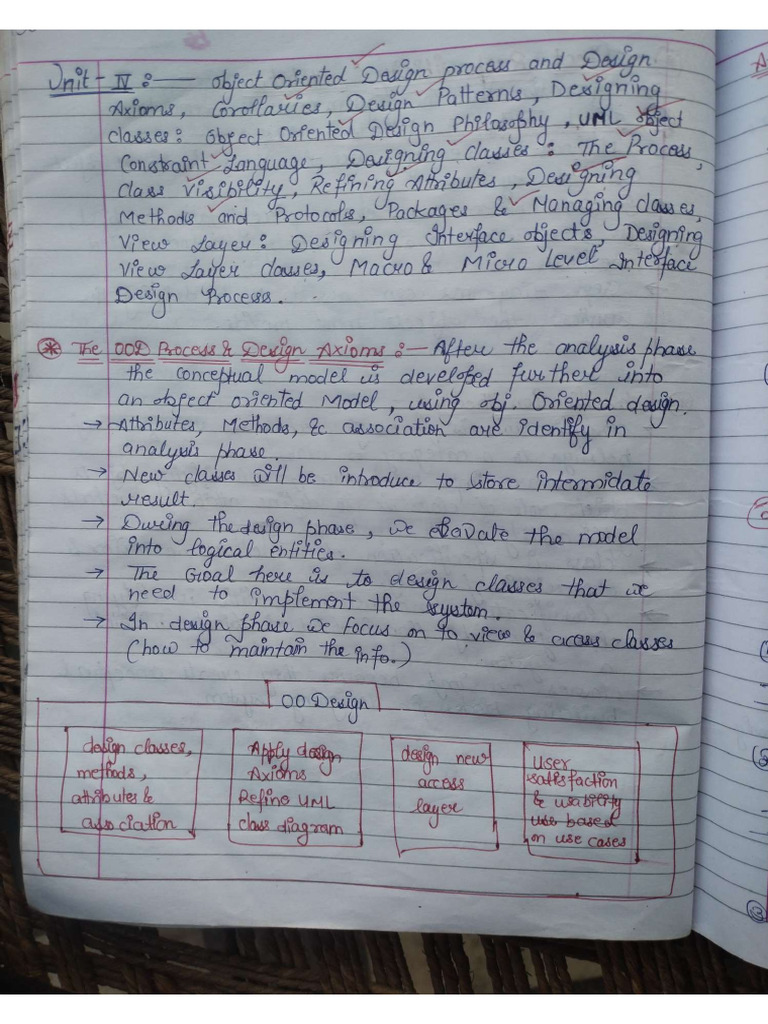 Unit - IV :— Object Oriented Design process and Design
Axioms, Corollaries, Design Patterns, Designing
classes: Object Oriented Design Philosophy, UML object
Constraint Language, Designing classes: The Process,
Class Visibility, Refining Attributes, Designing
Methods and Protocols, Packages & Managing classes,
View Layer: Designing Interface objects, Designing
View Layer classes, Macro & Micro Level Interface
Design Process.
* The OOD Process & Design Axioms :— After the analysis phase
the conceptual model is developed further into
an object oriented Model, using obj. Oriented design.
→ Attributes, Methods, & association are identify in
analysis phase.
→ New classes will be introduce to store intermidate
result.
→ During the design phase, we elevate the model
into logical entities.
→ The Goal here is to design classes that we
need to implement the system.
→ In design phase we focus on to view & access classes
(how to maintain the info.)
OO Design
design classes,
methods,
attributes &
association
Apply design
Axioms
Refine UML
class diagram
design new
access
layer
User
satisfaction
& usability
user based
on use cases